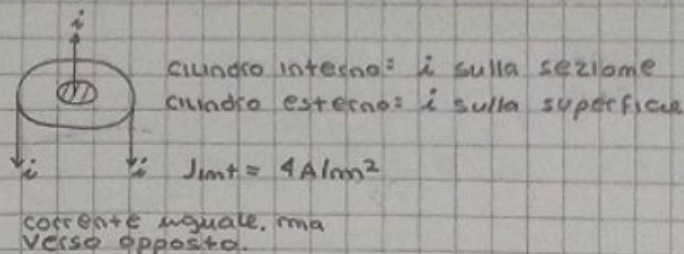 i
cilindro interno: i sulla sezione
cilindro esterno: i sulla superficie
i i Jint = 4A/m²
corrente uguale, ma
verso opposto.